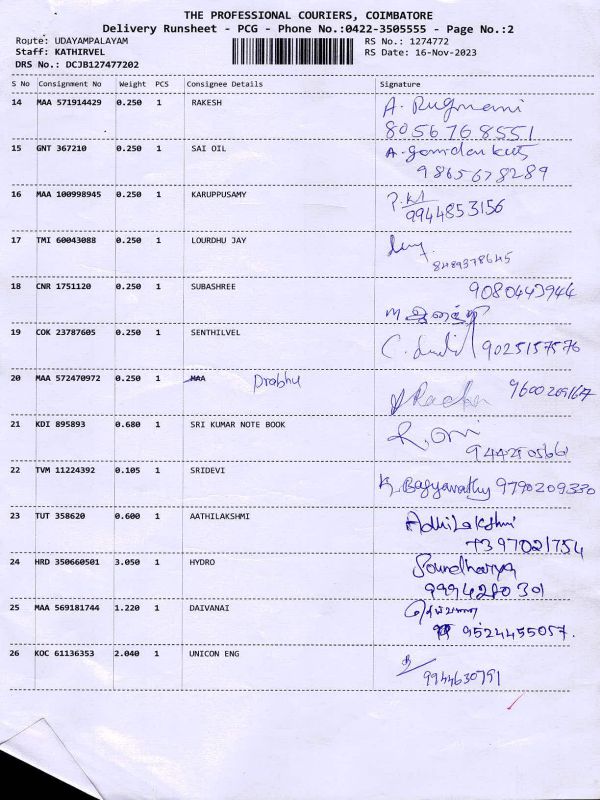 THE PROFESSIONAL COURIERS, COIMBATORE
Delivery Runsheet - PCG - Phone No.:0422-3505555 - Page No.:2
Route: UDAYAMPALAYAM RS No.: 1274772
Staff: KATHIRVEL RS Date: 16-Nov-2023
DRS No.: DCJB127477202
S No Consignment No Weight PCS Consignee Details Signature
14 MAA 571914429 0.250 1 RAKESH A. Rugmani
8056768551
15 GNT 367210 0.250 1 SAI OIL A.
9865678289
16 MAA 100998945 0.250 1 KARUPPUSAMY
9944853156
17 TMI 60043088 0.250 1 LOURDHU JAY
8489378645
18 CNR 1751120 0.250 1 SUBASHREE 9080443944
19 COK 23787605 0.250 1 SENTHILVEL 9025157576
20 MAA 572470972 0.250 1 MAA Prabhu
21 KDI 895893 0.680 1 SRI KUMAR NOTE BOOK
22 TVM 11224392 0.105 1 SRIDEVI 9790209330
23 TUT 358620 0.600 1 AATHILAKSHMI Adhilakshmi
7397021754
24 HRD 350660501 3.050 1 HYDRO Soundharya
9994280301
25 MAA 569181744 1.220 1 DAIVANAI தெய்வானை
9524455057.
26 KOC 61136353 2.040 1 UNICON ENG
9944630791